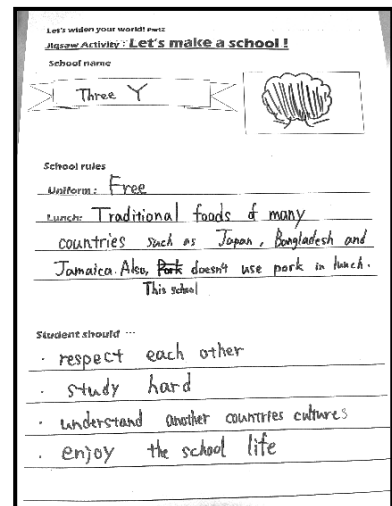 Let's widen your world! Part2
Jigsaw Activity: Let's make a school!
School name
Three Y
School rules
Uniform: Free
Lunch: Traditional foods of many
countries such as Japan, Bangladesh and
Jamaica. Also, Pork doesn't use pork in lunch.
This school
Student should …
· respect each other
· study hard
· understand another countries cultures
· enjoy the school life